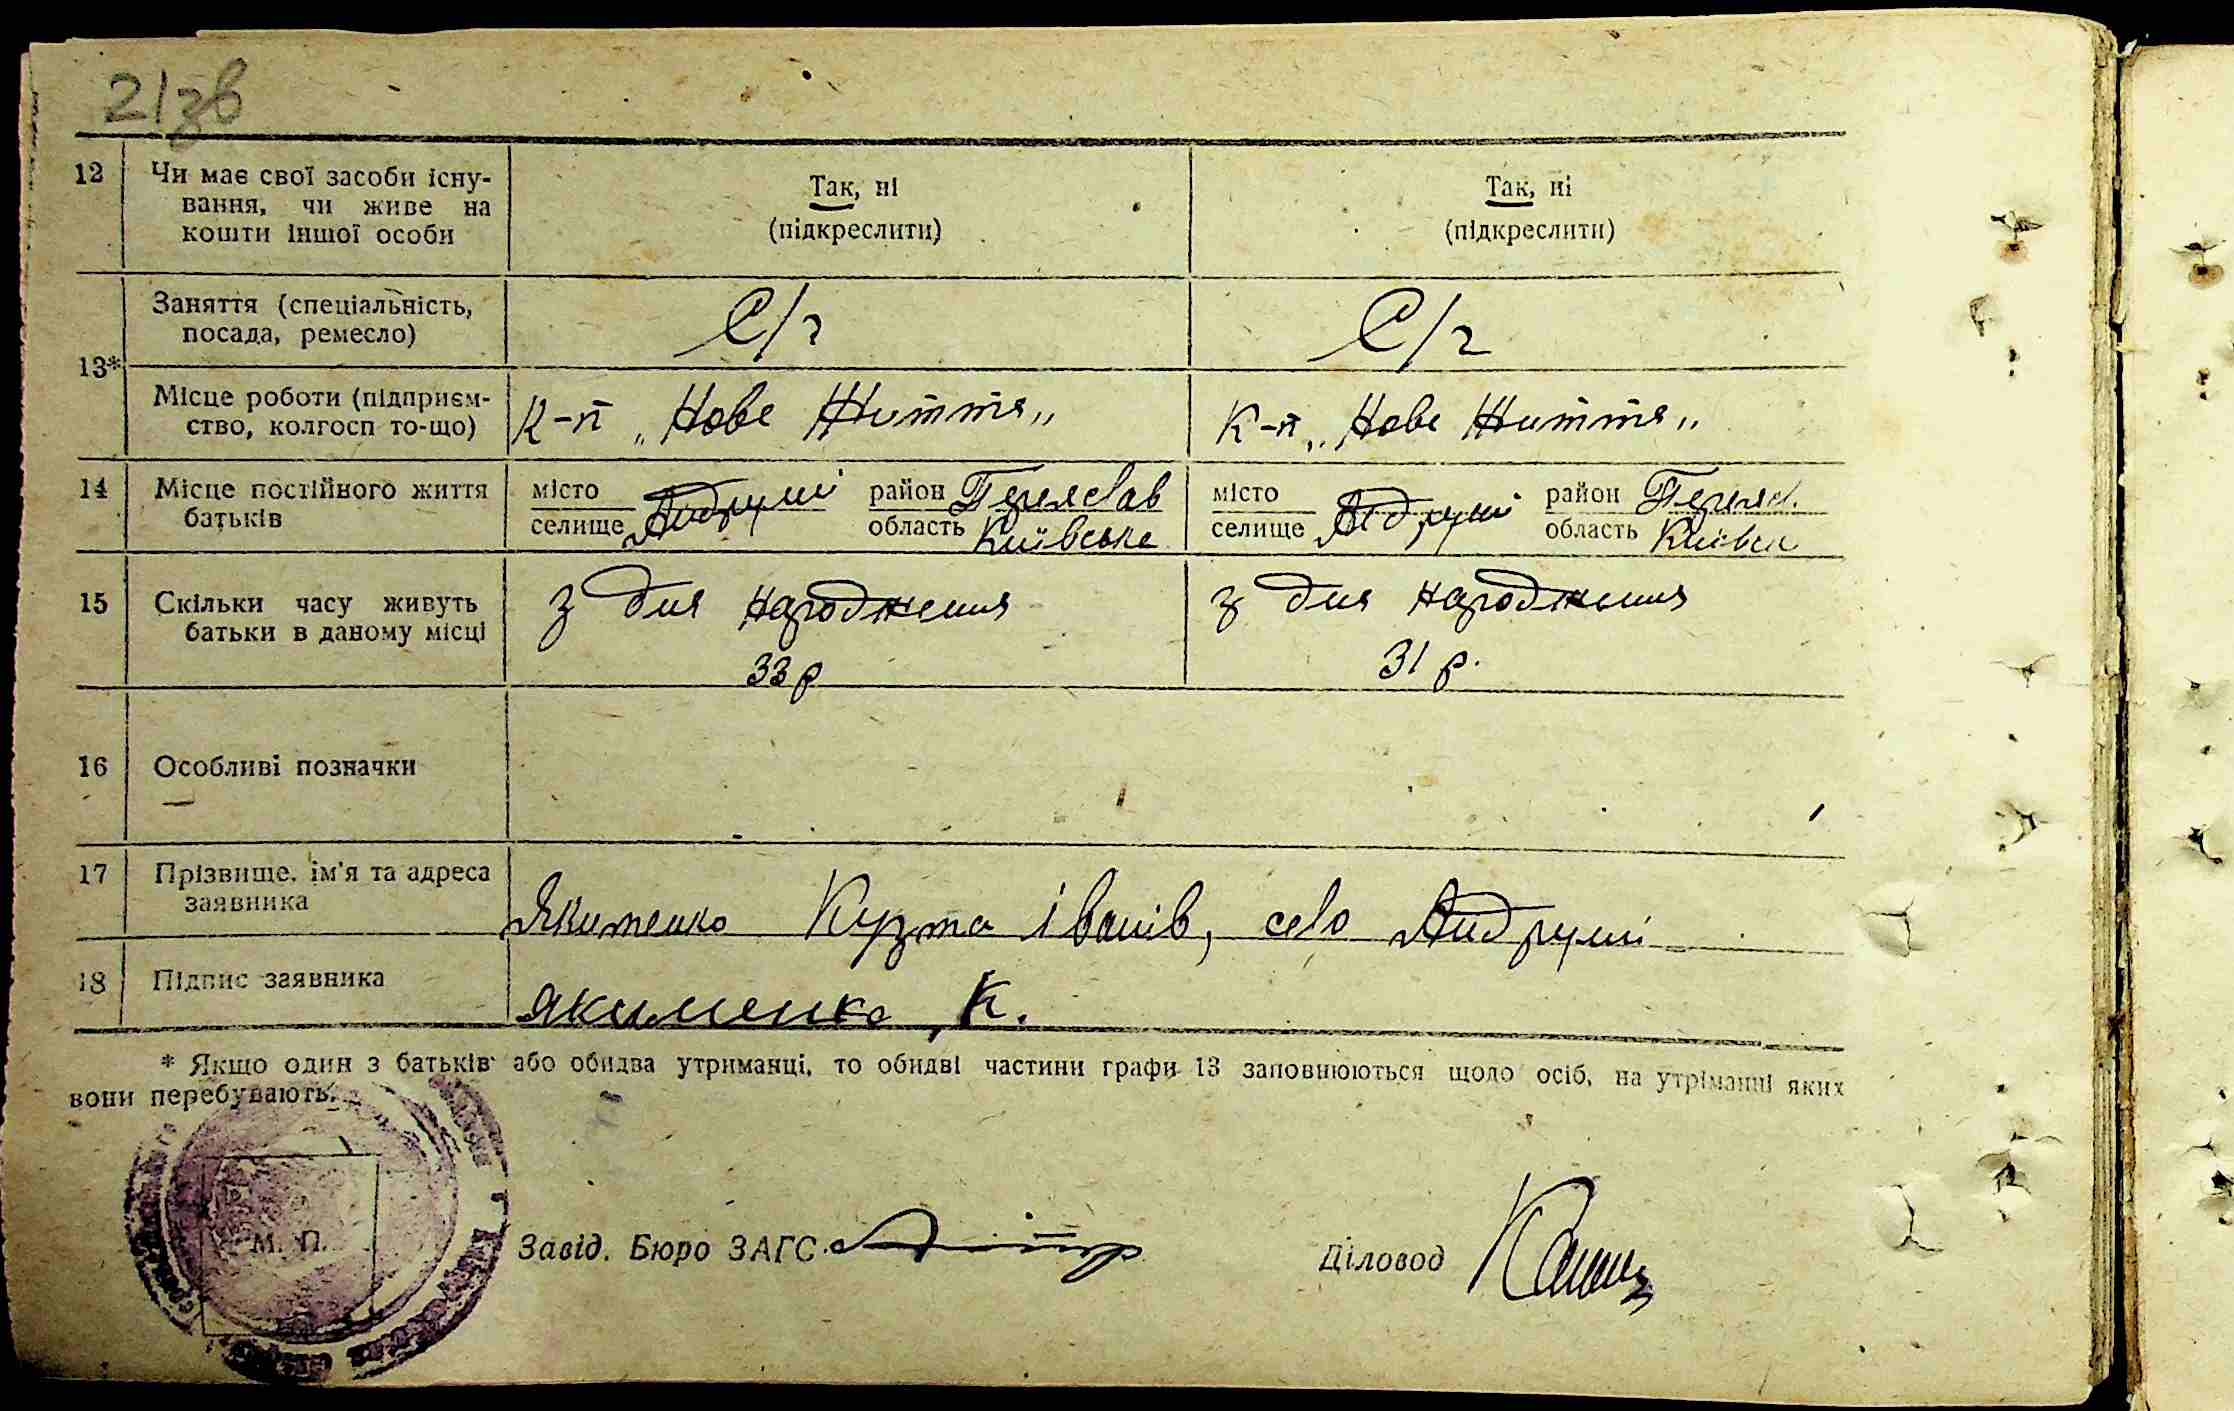 21зв
12 Чи має свої засоби існу- Так, ні Так, ні
вання, чи живе на
кошти іншої особи (підкреслити) (підкреслити)
Заняття (спеціальність, С/г С/г
посада, ремесло)
13*
Місце роботи (підприєм- К-п „Нове Життя„ К-п „Нове Життя„
ство, колгосп то-що)
14 Місце постійного життя місто Андруші район Переяслав місто Андруші район Переясл.
батьків селище область Київське селище область Київськ
15 Скільки часу живуть з дня народження з дня народження
батьки в даному місці 33 р 31 р.
16 Особливі позначки
17 Прізвище, ім'я та адреса
заявника Якименко Кузма Іванів, село Андруші
18 Підпис заявника Якименко К.
* Якщо один з батьків або обидва утриманці, то обидві частини графи 13 заповнюються щодо осіб, на утриманні яких
вони перебувають.
М. П.
Завід. Бюро ЗАГС Діловод